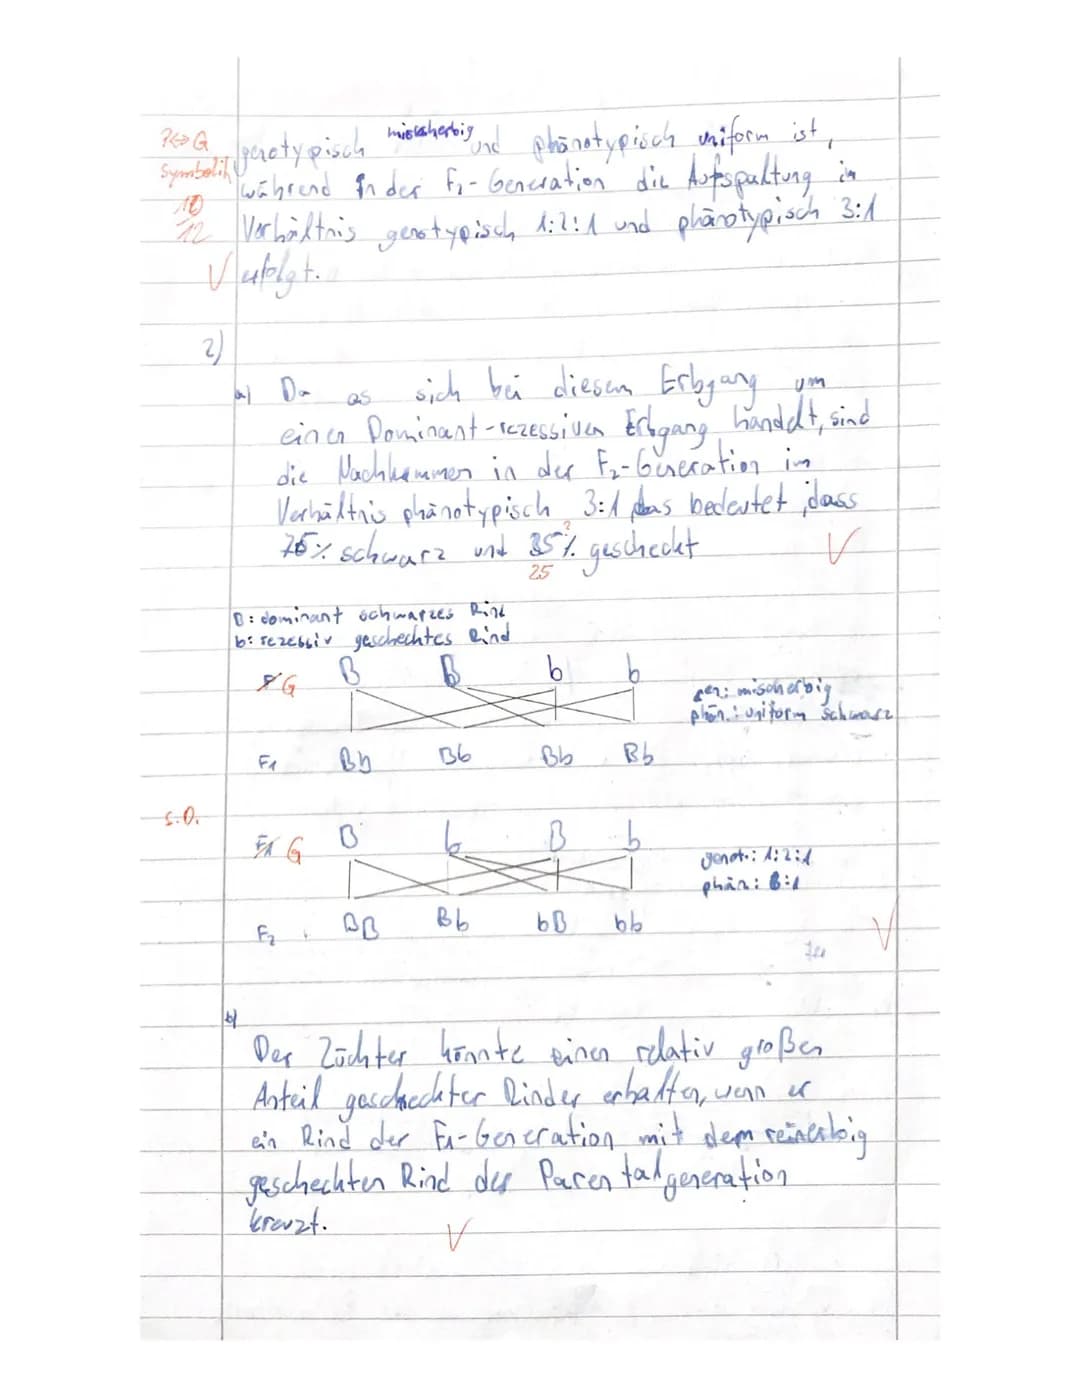 P<=>G
Symbolik
10
12
genotypisch mischerbig und phänotypisch uniform ist,
während in der F2-Generation die Aufspaltung im
Verhältnis genotypisch 1:2:1 und phänotypisch 3:1
erfolgt.
2)
a) Da es sich bei diesem Erbgang um
einen Dominant-rezessiven Erbgang handelt, sind
die Nachkommen in der F2-Generation im
Verhältnis phänotypisch 3:1 das bedeutet, dass
75% schwarz und 35% gescheckt
25
B: dominant schwarzes Rind
b: rezessiv geschecktes Rind
P G B B b b
gen: mischerbig
phän.: uniform schwarz
F1 Bb Bb Bb Bb
s.o.
F1 G B b B b
genot.: 1:2:1
phän: 3:1
F2 BB Bb bB bb
b)
Der Züchter könnte einen relativ großen
Anteil gescheckter Rinder erhalten, wenn er
ein Rind der F1-Generation mit dem reinerbig
gescheckten Rind der Parentalgeneration
kreuzt.